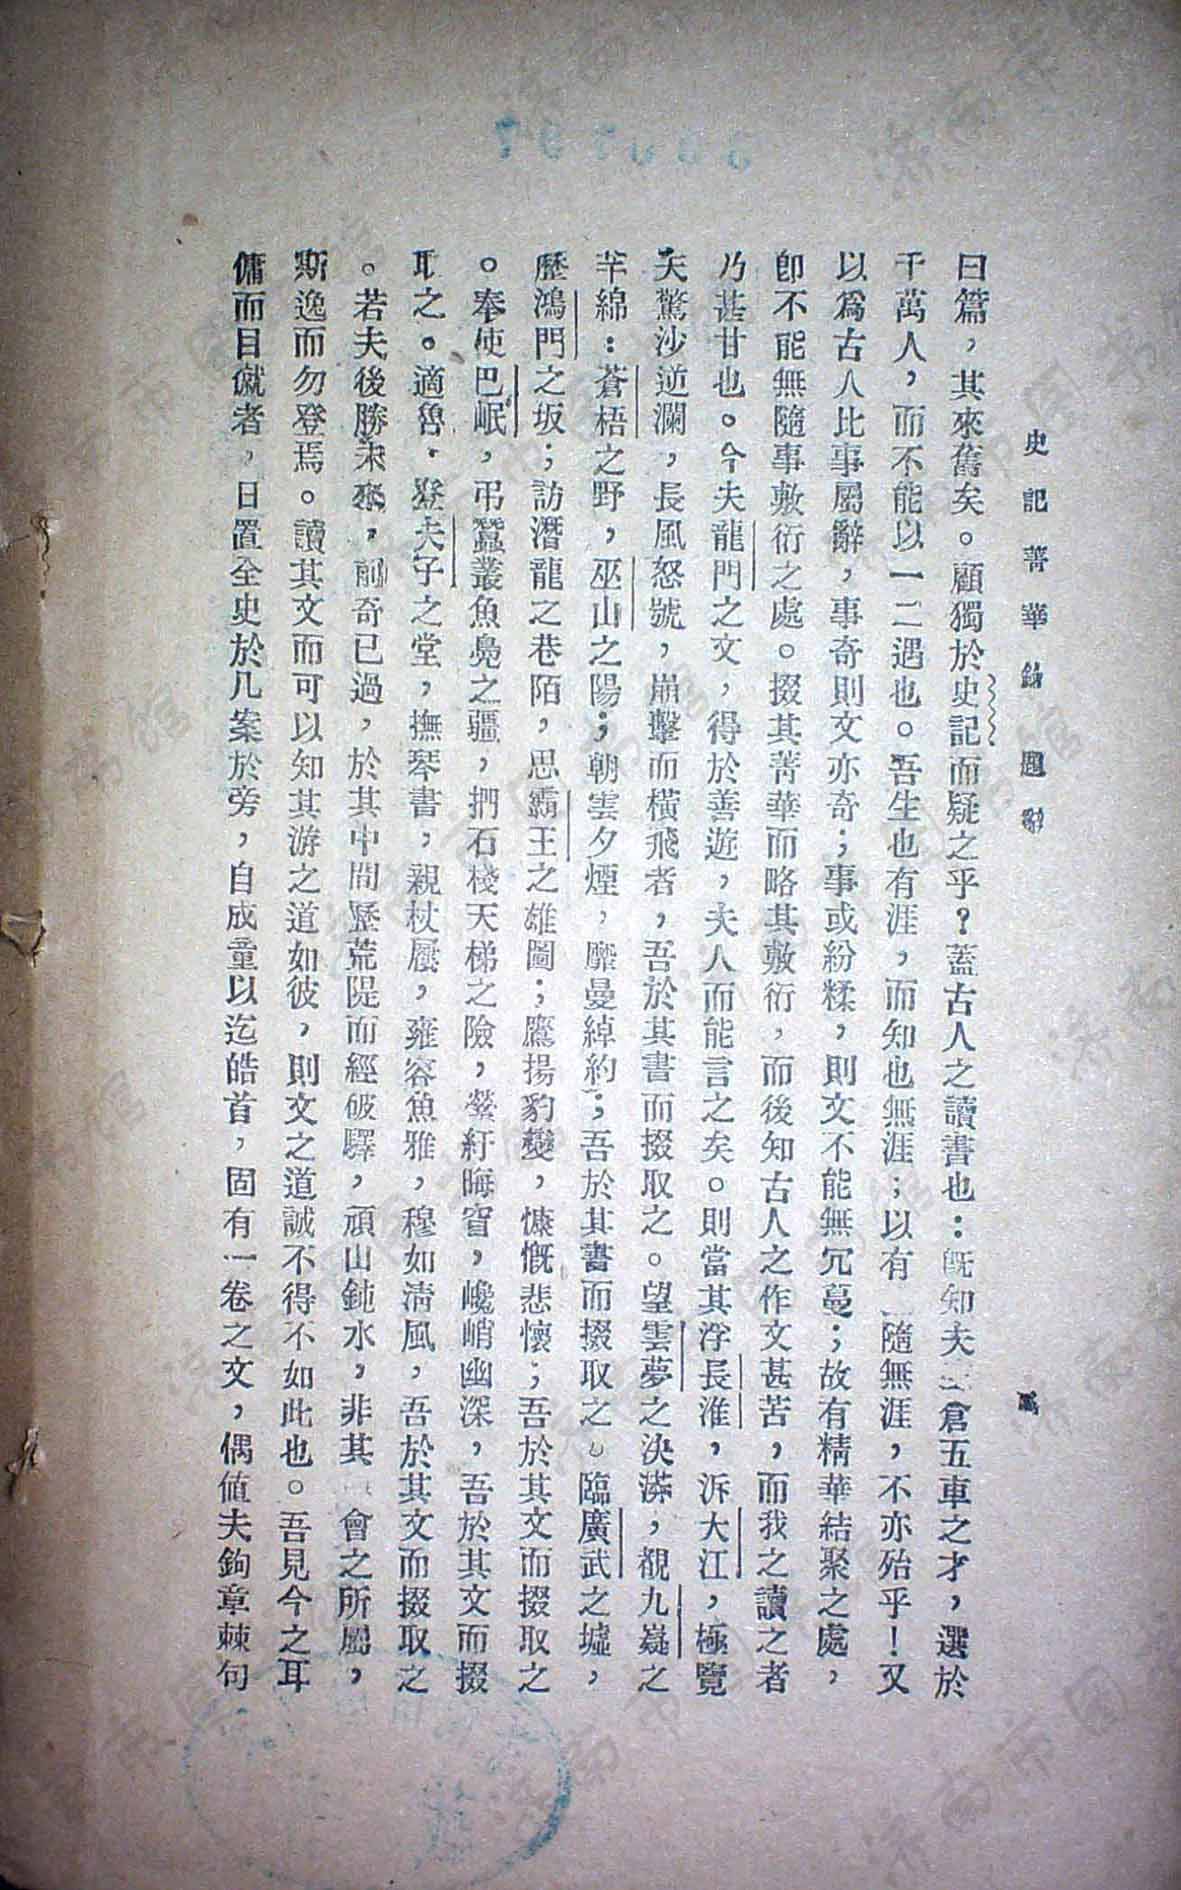 史記菁華錄 題辭
曰篇，其來舊矣。顧獨於史記而疑之乎？蓋古人之讀書也：既知夫三倉五車之才，選於
千萬人，而不能以一二遇也。吾生也有涯，而知也無涯；以有隨無涯，不亦殆乎！又
以爲古人比事屬辭，事奇則文亦奇；事或紛糅，則文不能無冗蔓；故有精華結聚之處，
卽不能無隨事敷衍之處。掇其菁華而略其敷衍，而後知古人之作文甚苦，而我之讀之者
乃甚甘也。今夫龍門之文，得於善遊，夫人而能言之矣。則當其浮長淮，泝大江，極覽
夫驚沙逆瀾，長風怒號，崩擊而橫飛者，吾於其書而掇取之。望雲夢之泱漭，覩九嶷之
芊綿：蒼梧之野，巫山之陽；朝雲夕煙，靡曼綽約；吾於其書而掇取之。臨廣武之墟，
歷鴻門之坂；訪潛龍之巷陌，思霸王之雄圖；鷹揚豹變，慷慨悲懷；吾於其文而掇取之
。奉使巴岷，弔蠶叢魚鳧之疆，捫石棧天梯之險，縈紆晦窅，巉峭幽深，吾於其文而掇
取之。適魯，登夫子之堂，撫琴書，親杖屨，雍容魚雅，穆如淸風，吾於其文而掇取之
。若夫後勝未來，前奇已過，於其中間歷荒隄而經破驛，頑山鈍水，非其會之所屬，
斯逸而勿登焉。讀其文而可以知其游之道如彼，則文之道誠不得不如此也。吾見今之耳
傭而目僦者，日置全史於几案於旁，自成童以迄皓首，固有一卷之文，偶値夫鉤章棘句